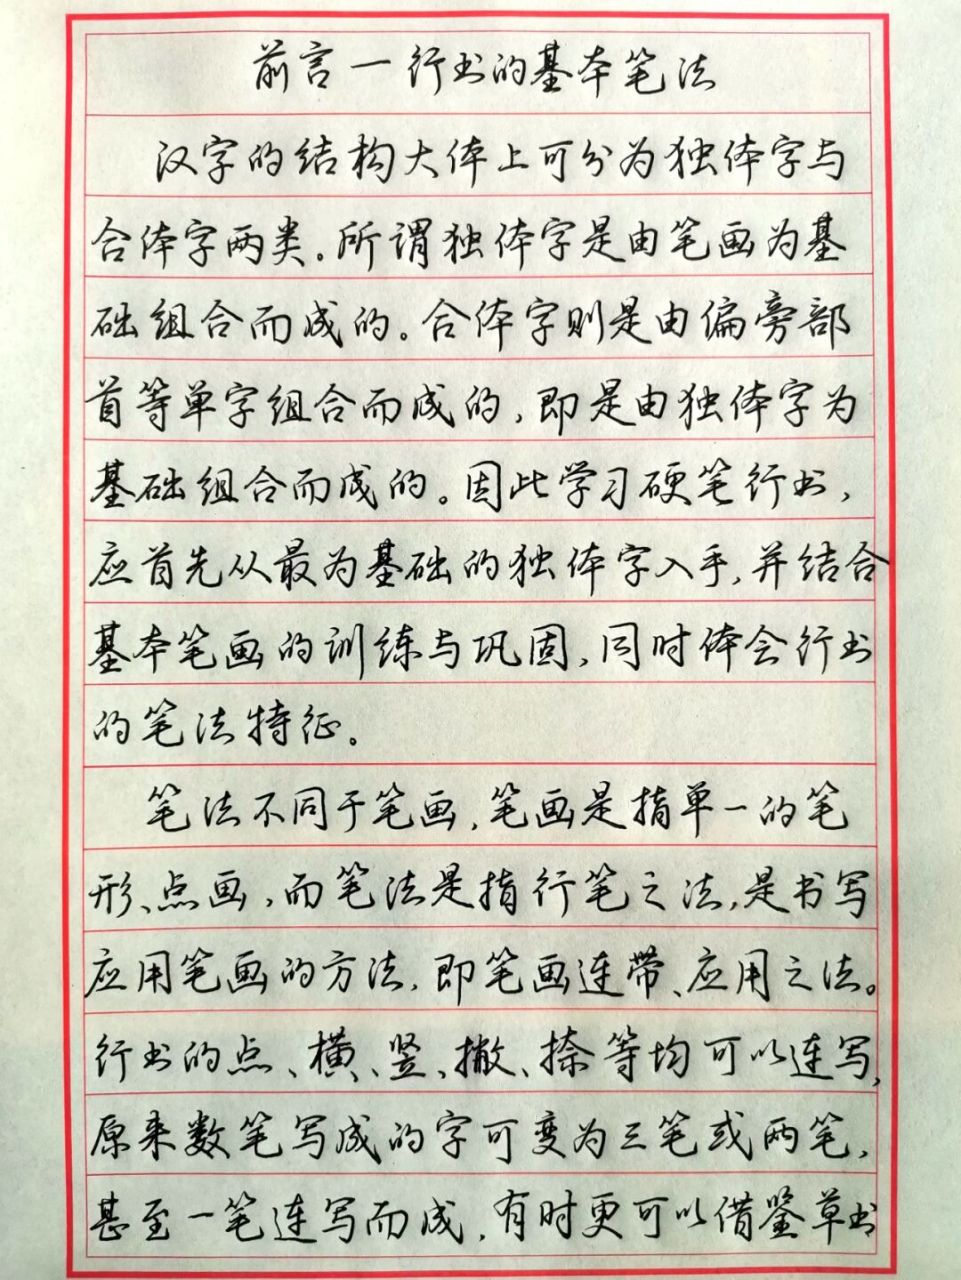 前言一行书的基本笔法
汉字的结构大体上可分为独体字与
合体字两类。所谓独体字是由笔画为基
础组合而成的。合体字则是由偏旁部
首等单字组合而成的,即是由独体字为
基础组合而成的。因此学习硬笔行书,
应首先从最为基础的独体字入手,并结合
基本笔画的训练与巩固,同时体会行书
的笔法特征。
笔法不同于笔画,笔画是指单一的笔
形、点画,而笔法是指行笔之法,是书写
应用笔画的方法,即笔画连带、应用之法。
行书的点、横、竖、撇、捺等均可以连写,
原来数笔写成的字可变为三笔或两笔,
甚至一笔连写而成,有时更可以借鉴草书